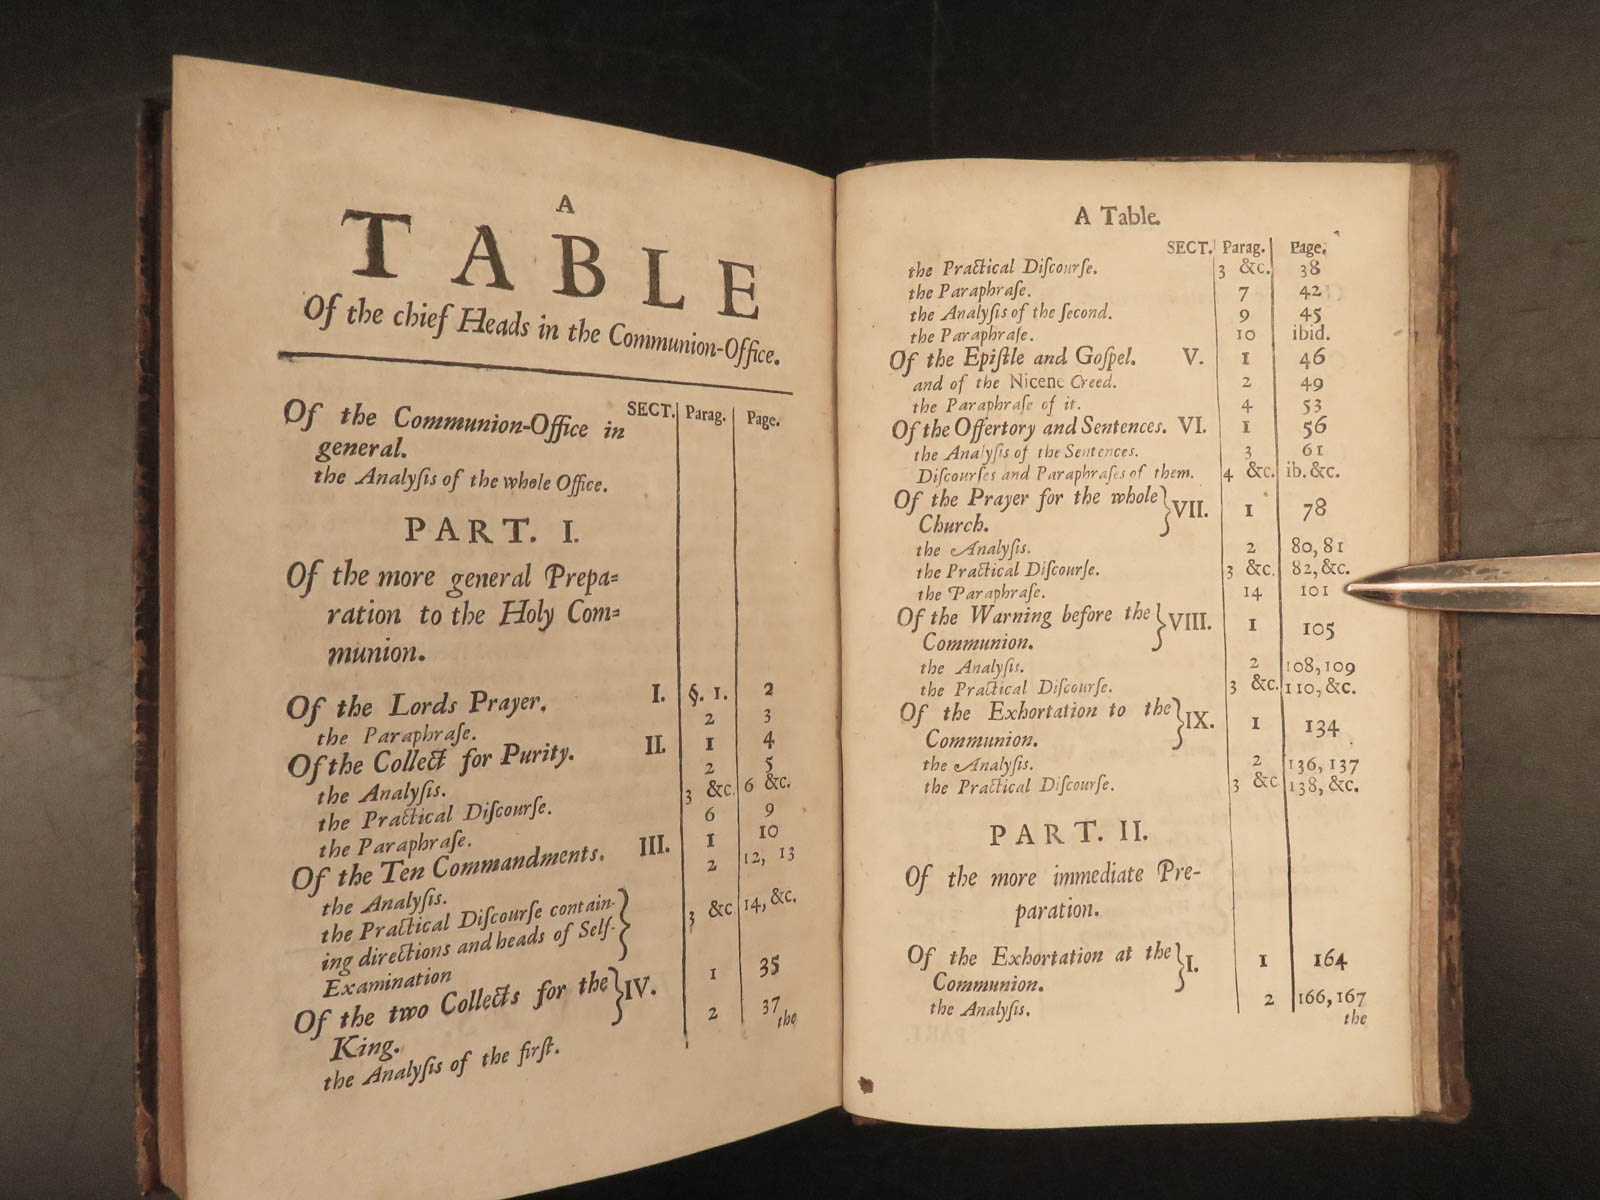 A
TABLE
Of the chief Heads in the Communion-Office.
SECT. Parag. Page.
Of the Communion-Office in
general.
the Analyſis of the whole Office.
PART. I.
Of the more general Prepa=
ration to the Holy Com=
munion.
Of the Lords Prayer. I. §. 1. 2
the Paraphraſe. 2 3
Of the Collect for Purity. II. 1 4
the Analyſis. 2 5
the Practical Diſcourſe. 3 &c. 6 &c.
the Paraphraſe. 6 9
Of the Ten Commandments. III. 1 10
the Analyſis. 2 12, 13
the Practical Diſcourſe contain-
ing directions and heads of Self-
Examination } 3 &c 14, &c.
Of the two Collects for the
King. } IV. 1 35
the Analyſis of the firſt. 2 37
the
A Table.
SECT. Parag. Page.
the Practical Diſcourſe. 3 &c. 38
the Paraphraſe. 7 42
the Analyſis of the ſecond. 9 45
the Paraphraſe. 10 ibid.
Of the Epiſtle and Goſpel. V. 1 46
and of the Nicene Creed. 2 49
the Paraphraſe of it. 4 53
Of the Offertory and Sentences. VI. 1 56
the Analyſis of the Sentences. 3 61
Diſcourſes and Paraphraſes of them. 4 &c. ib. &c.
Of the Prayer for the whole
Church. } VII. 1 78
the Analyſis. 2 80, 81
the Practical Diſcourſe. 3 &c. 82, &c.
the Paraphraſe. 14 101
Of the Warning before the
Communion. } VIII. 1 105
the Analyſis. 2 108, 109
the Practical Diſcourſe. 3 &c. 110, &c.
Of the Exhortation to the
Communion. } IX. 1 134
the Analyſis. 2 136, 137
the Practical Diſcourſe. 3 &c 138, &c.
PART. II.
Of the more immediate Pre-
paration.
Of the Exhortation at the
Communion. } I. 1 164
the Analyſis. 2 166, 167
the